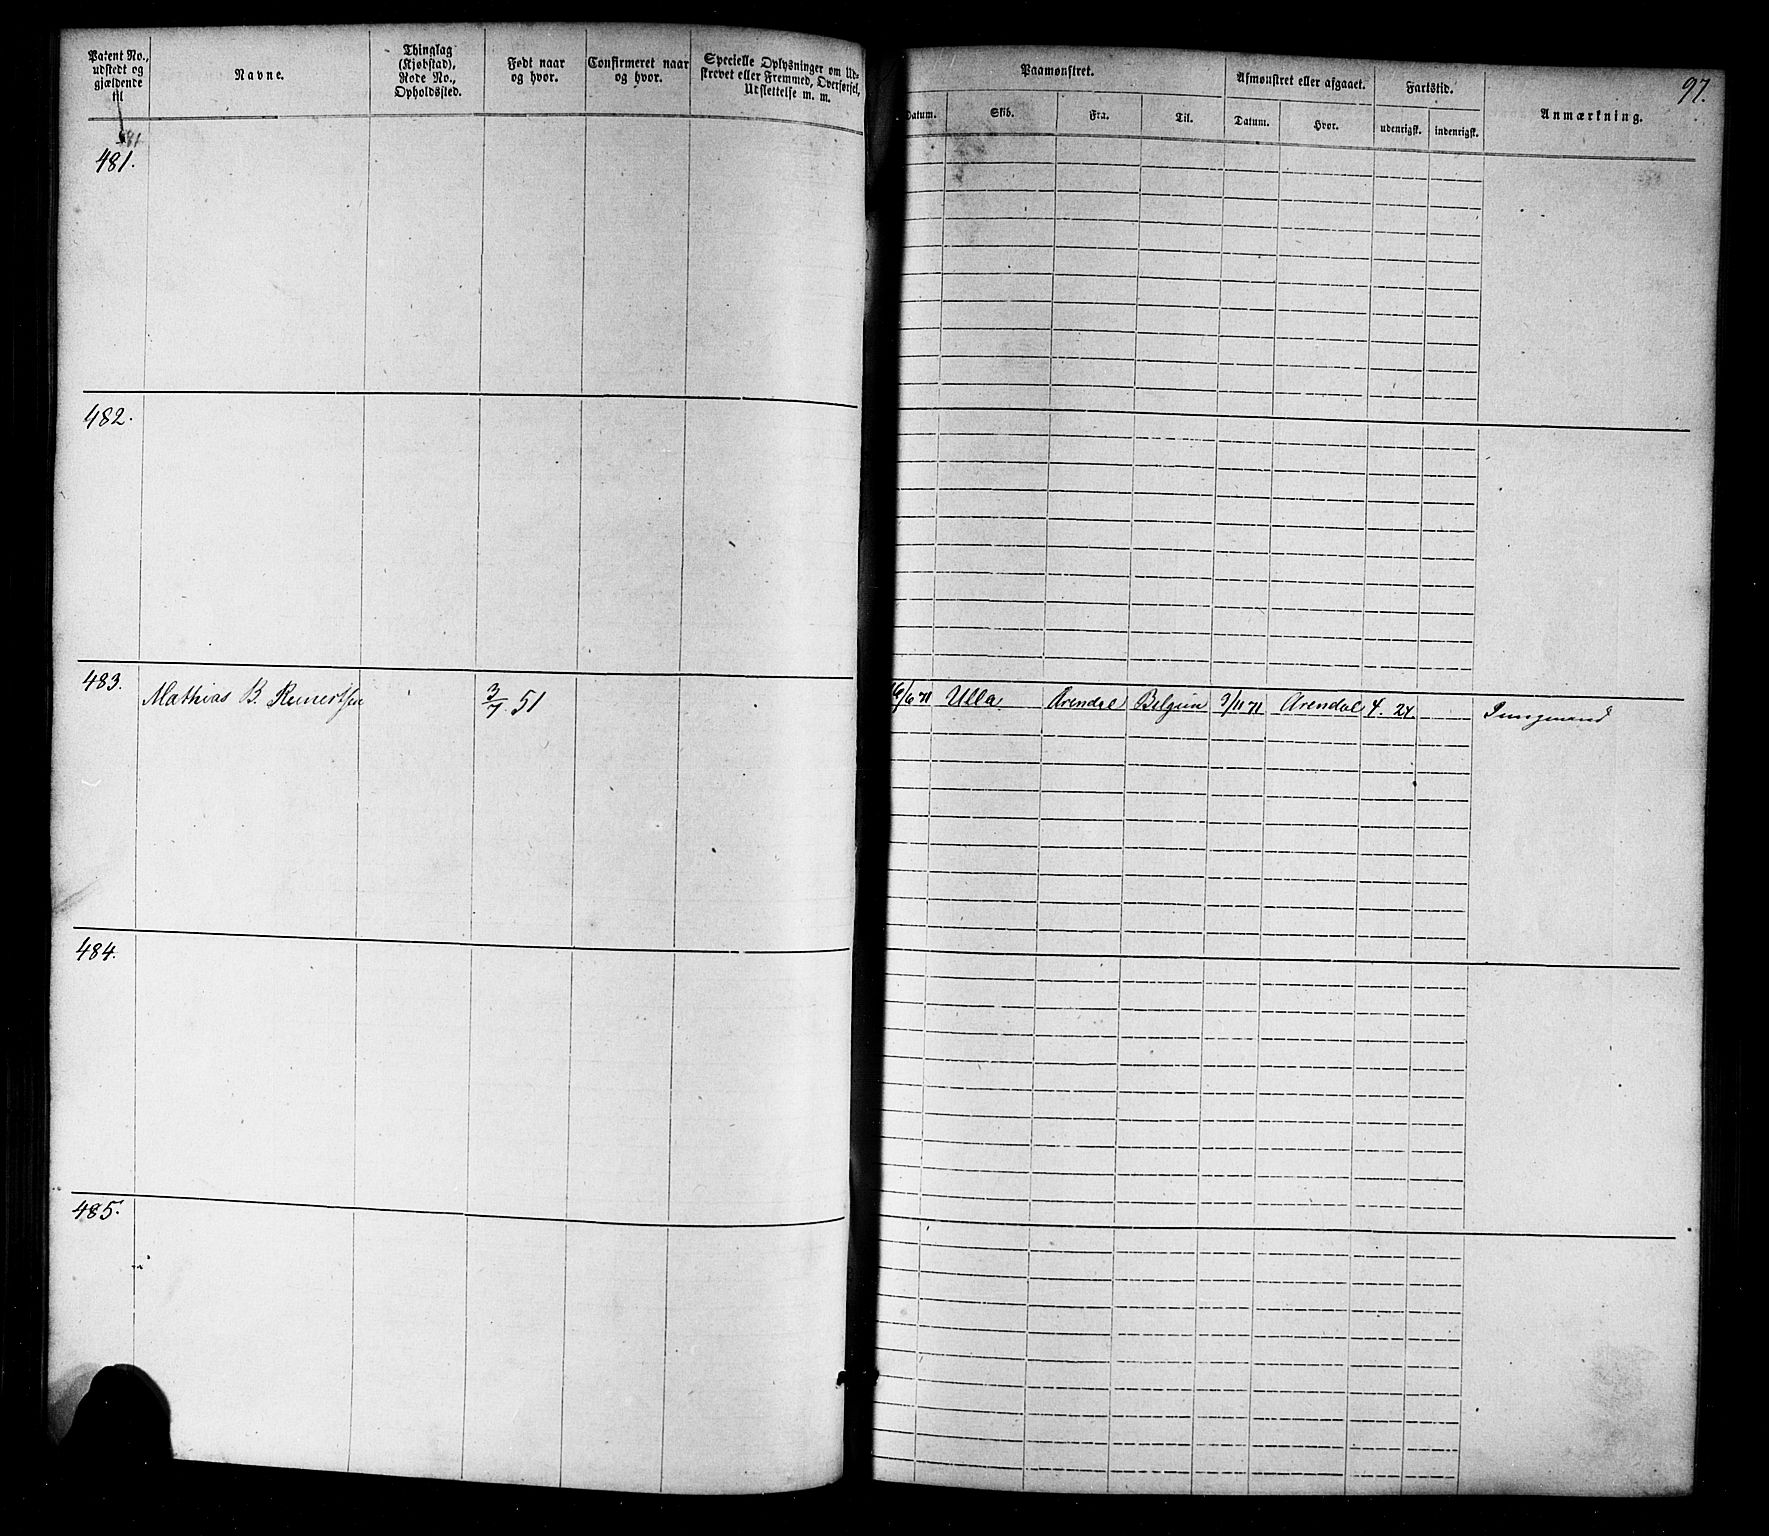 Patent No., udstedt og gjældende til
Navne.
Thinglag (Kjøbstad), Rode No., Opholdssted.
Født naar og hvor.
Confirmeret naar og hvor.
Specielle Oplysninger om Udskrevet eller Fremmed, Overførsel, Udslettelse m. m.
Paamønstret.
Datum.
Skib.
Fra.
Til.
Afmønstret eller afgaaet.
Datum.
Hvor.
Fartstid.
udenrigsk.
indenrigsk.
Anmærkning.
97.
481
481.
482.
483. Mathias B. Reinertsen 3/7 51 16/6 71 Ulla Arendal Belgien 9/11 71 Arendal 4. 24. Jungmand
484.
485.